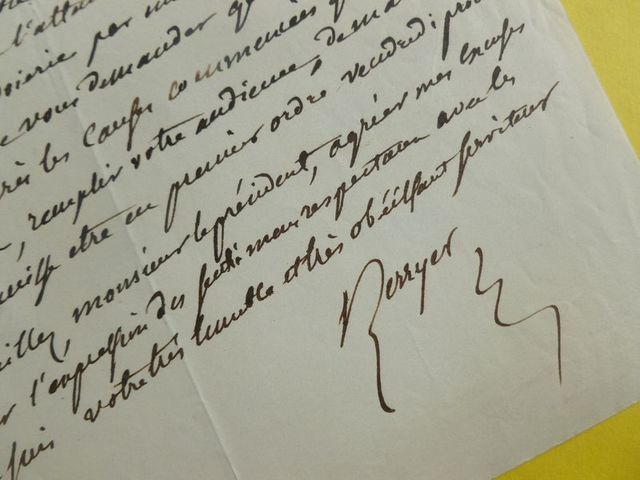 l'atta
par un
vous demander q
les causes commencées
remplir votre audience, dema
etre en premier ordre vendredi pro
monsieur le président, agréer mes excuses
l'expression des sentimens respectueux avec les
suis votre très humble et très obéissant serviteur
Berryer